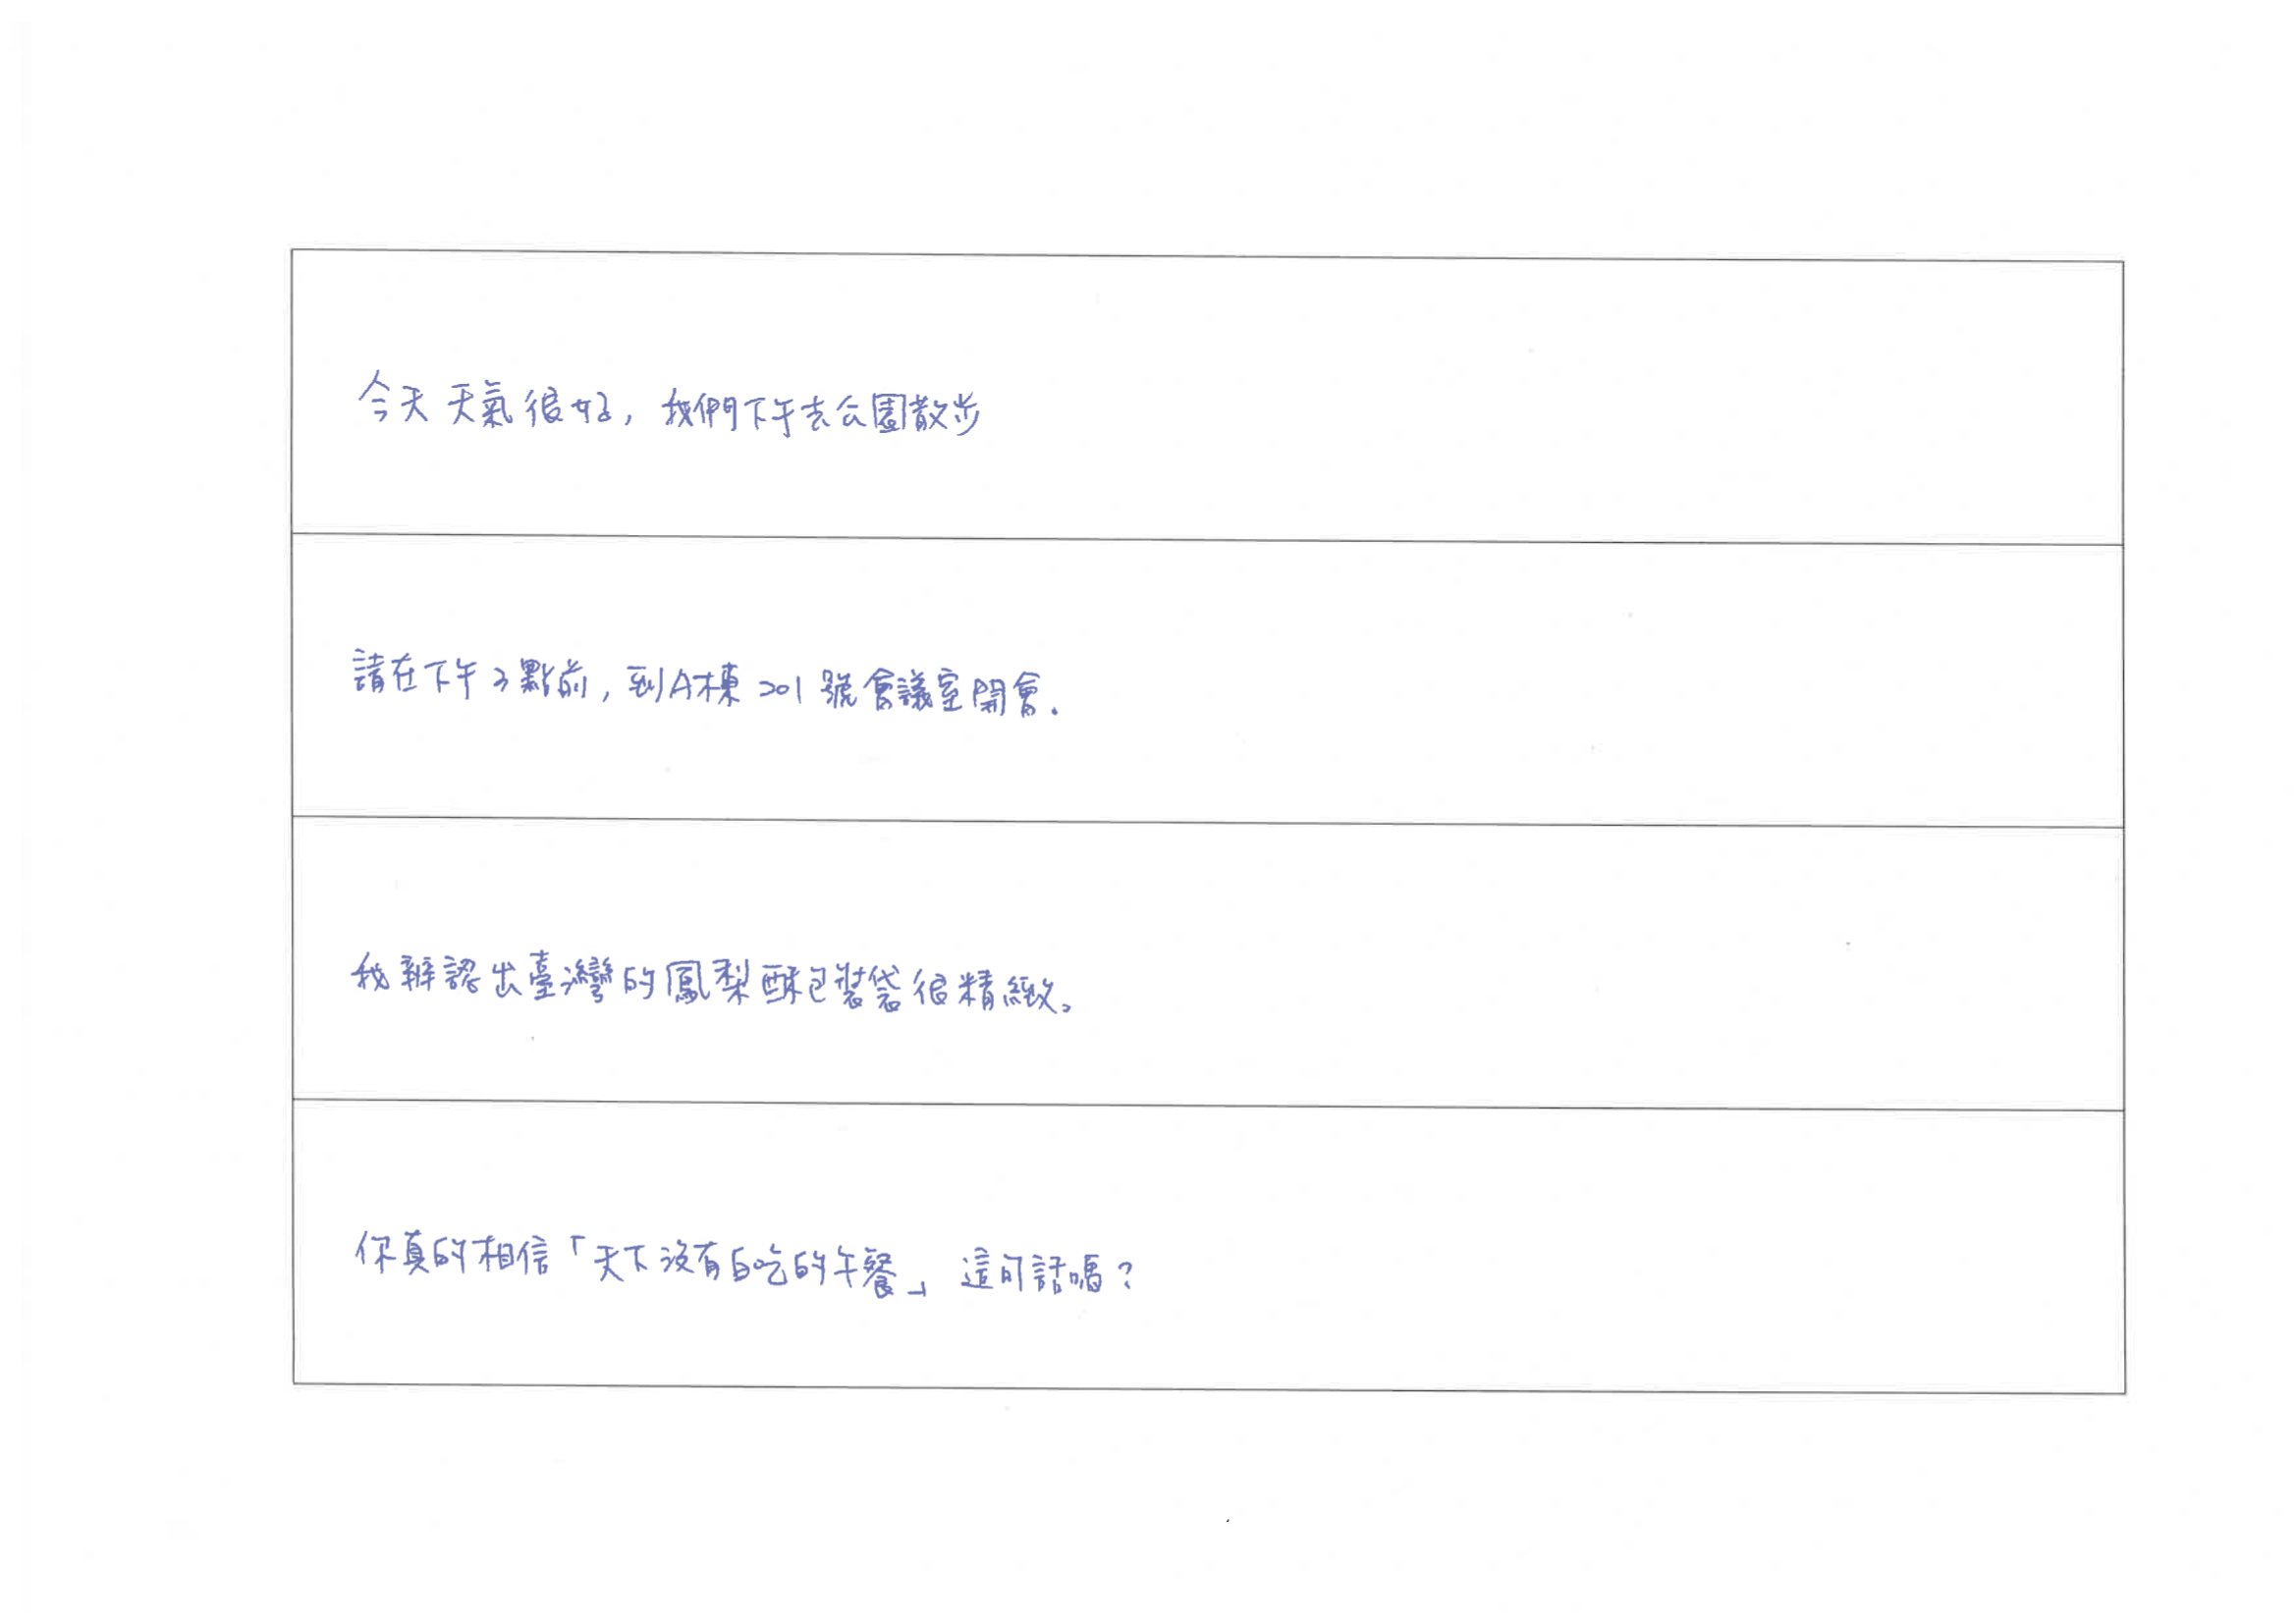 今天天氣很好，我們下午去公園散步
請在下午3點前，到A棟201號會議室開會.
我辨認出臺灣的鳳梨酥包裝袋很精緻。
你真的相信「天下沒有白吃的午餐」這句話嗎？